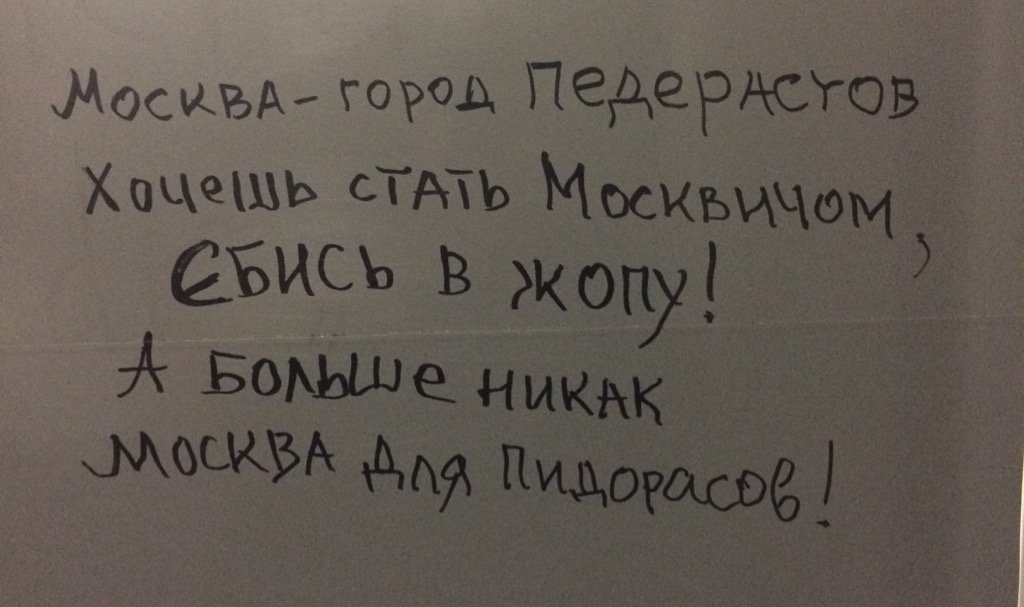 Москва - город педерастов
Хочешь стать Москвичом,
Ебись в жопу!
А больше никак
Москва для пидорасов!